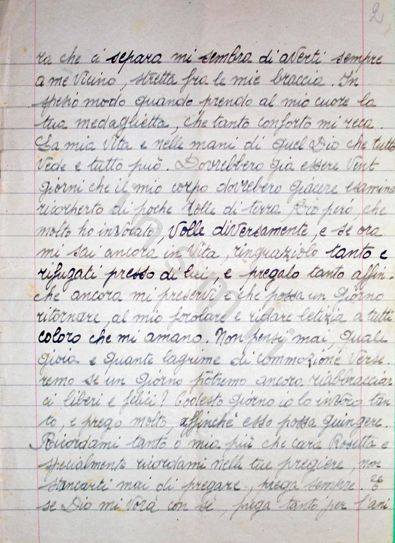 2
ra che ci separa mi sembra di averti sempre
a me Vicino, stretta fra le mie braccia. In
spezio modo quando prendo al mio cuore la
tua medaglietta, che tanto conforto mi reca.
La mia Vita e nelle mani di quel Dio che tutto
Vede e tutto può. Dovrebbero già essere Vent
giorni che il mio corpo dovrebero giacere esamine
ricoperto di poche Zolle di terra Dio però, che
molto ho invocato, Volle diversamente, e se ora
mi sai ancora in Vita, ringraziolo tanto e
rifugati presso di Lui, e pregalo tanto affin-
che ancora mi preservi e che possa un giorno
ritornare, al mio forolare e ridare letizia a tutti
coloro che mi amano. Non pensi mai, quale
gioia e quante lagrime di commozione Verse
remo se un giorno potremo ancora riabbracciar
ci liberi e felici? Codesto giorno io lo invoco tan
to, e prego molto, affinché esso possa giungere.
Ricordami tanto o mia più che cara Rosetta e
specialmente ricordami nelle tue preghiere, non
stancarti mai di pregare, prega sempre. E
se Dio mi Vorà con se, prega tanto per l'ani